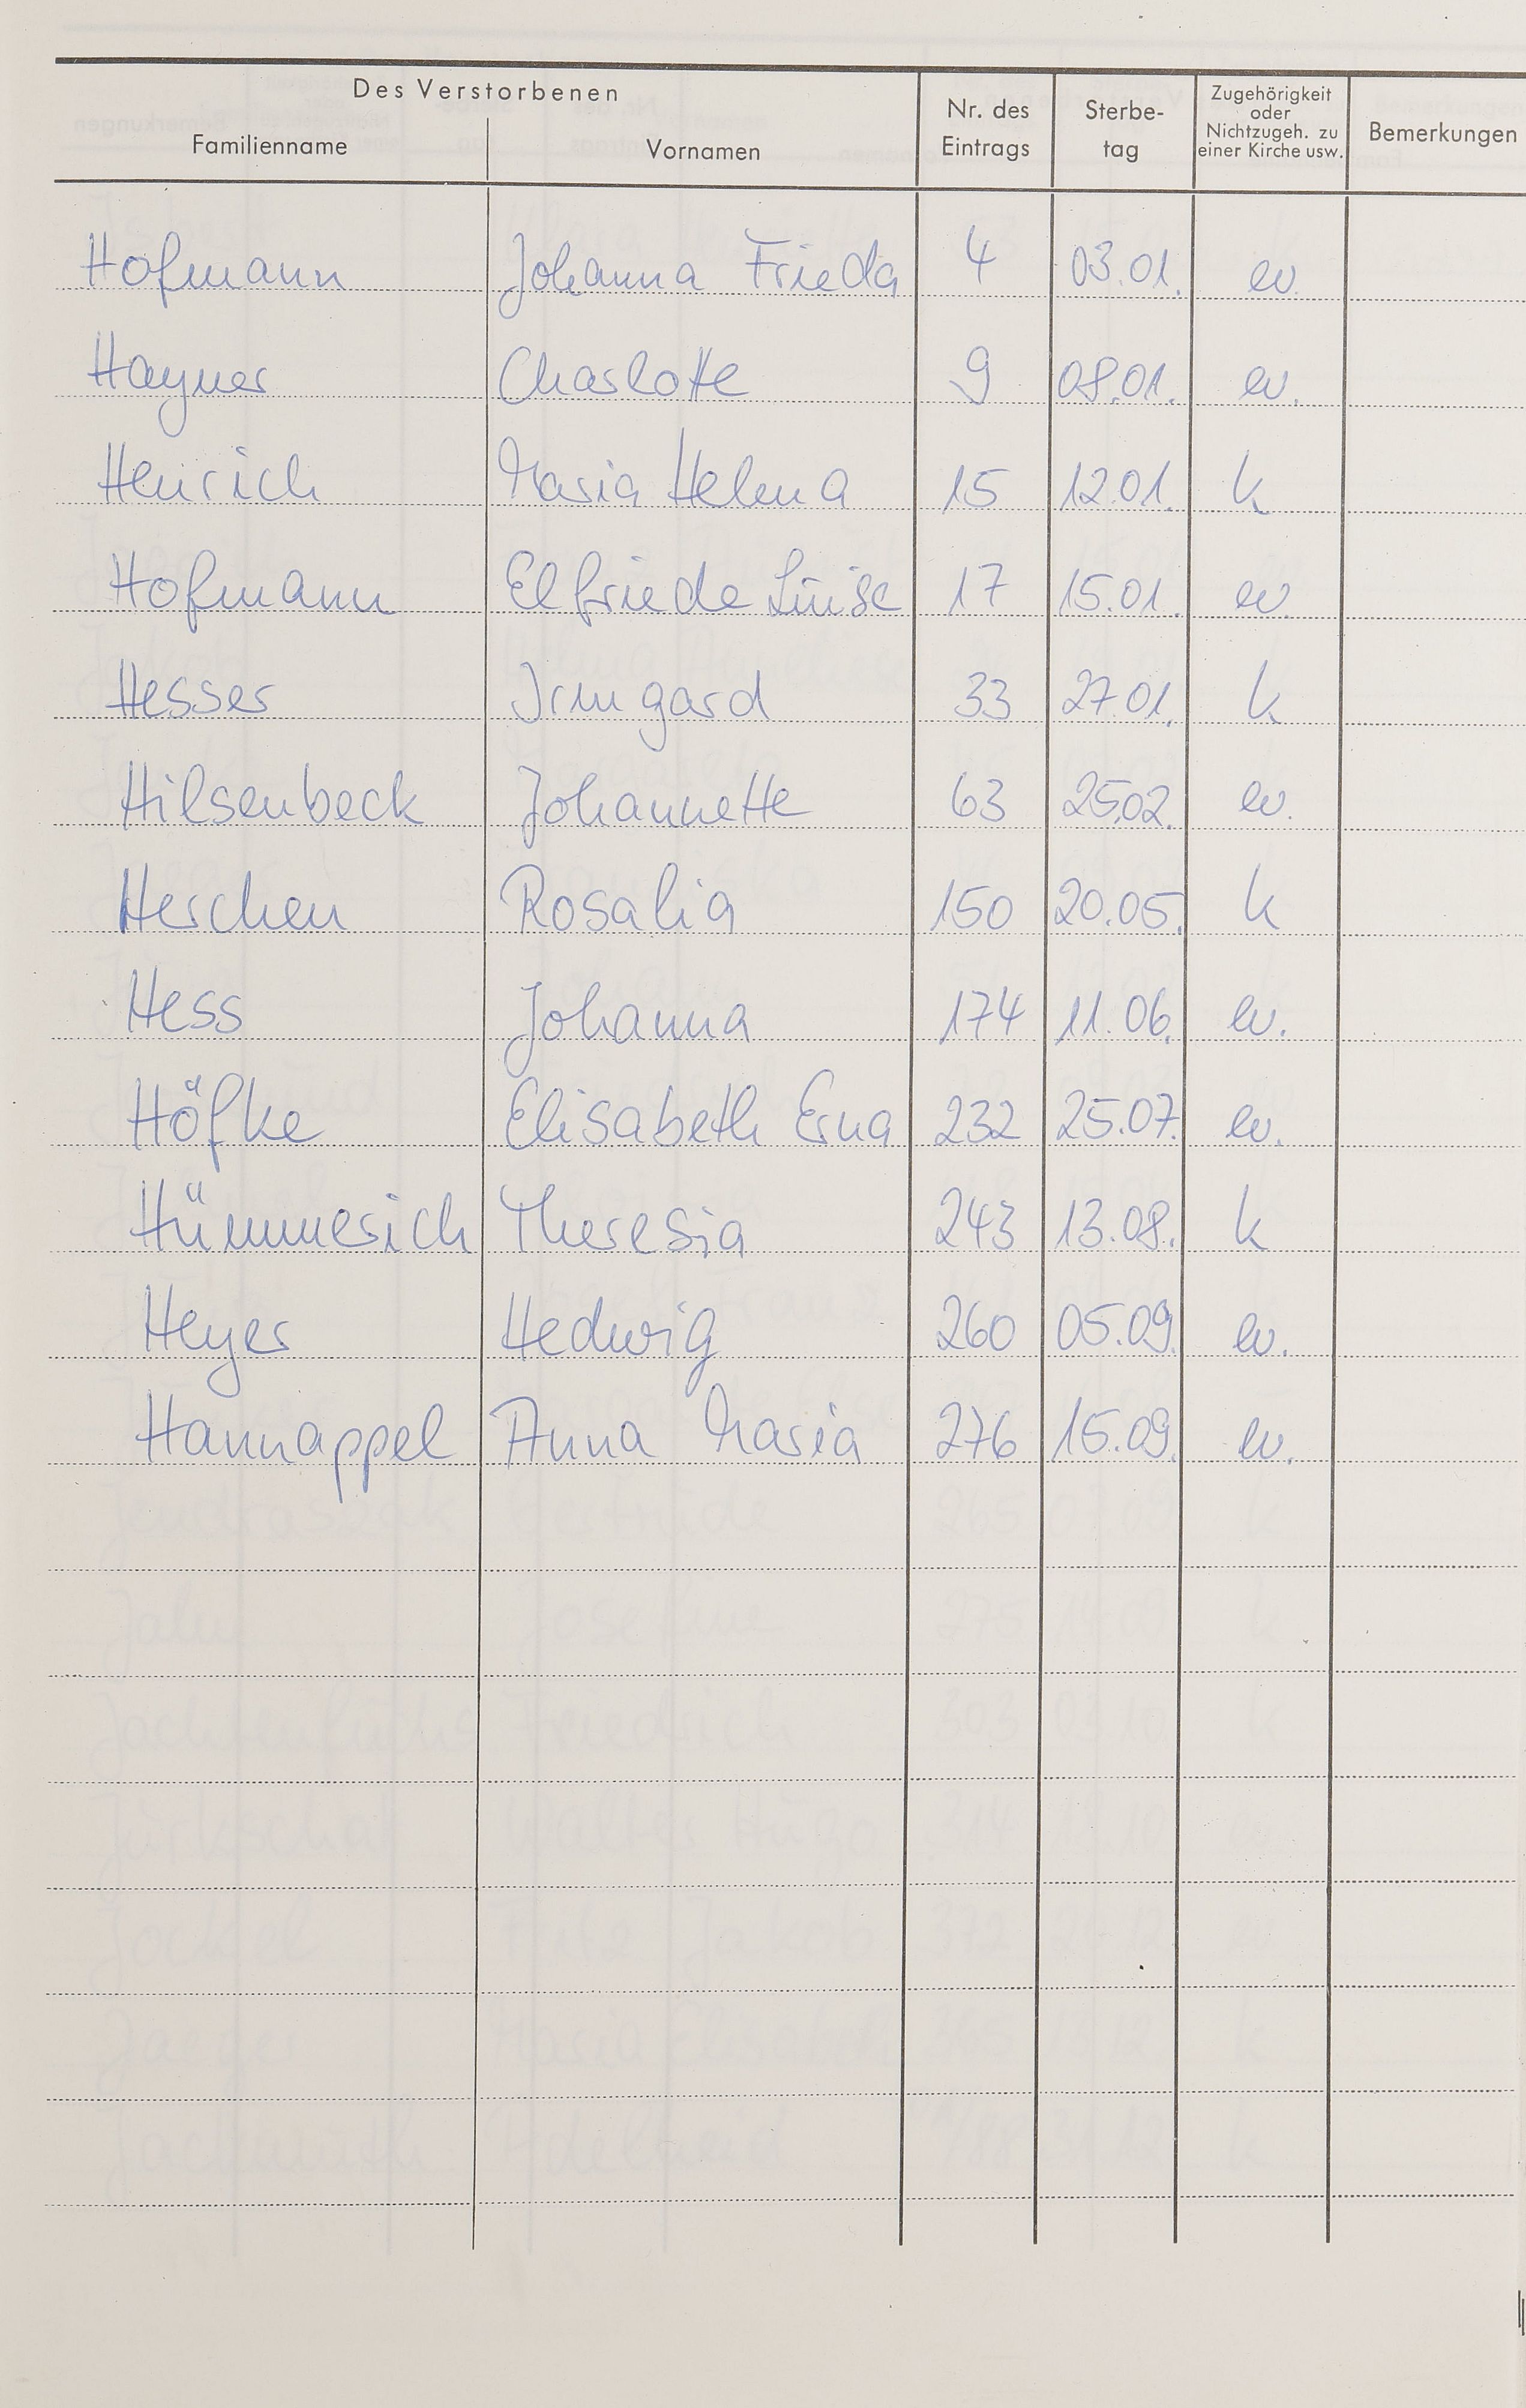 Des Verstorbenen
Familienname Vornamen Nr. des Eintrags Sterbe-tag Zugehörigkeit oder Nichtzugeh. zu einer Kirche usw. Bemerkungen
Hofmann Johanna Frieda 4 03.01. ev.
Hayner Charlotte 9 08.01. ev.
Henrich Maria Helena 15 12.01. k
Hofmann Elfriede Luise 17 15.01. ev.
Hesser Irmgard 33 27.01. k
Hilsenbeck Johannette 63 25.02. ev.
Herchen Rosalia 150 20.05. k
Hess Johanna 174 11.06. ev.
Höfke Elisabeth Erna 232 25.07. ev.
Hümmerich Theresia 243 13.08. k
Heyer Hedwig 260 05.09. ev.
Hannappel Anna Maria 276 15.09. ev.